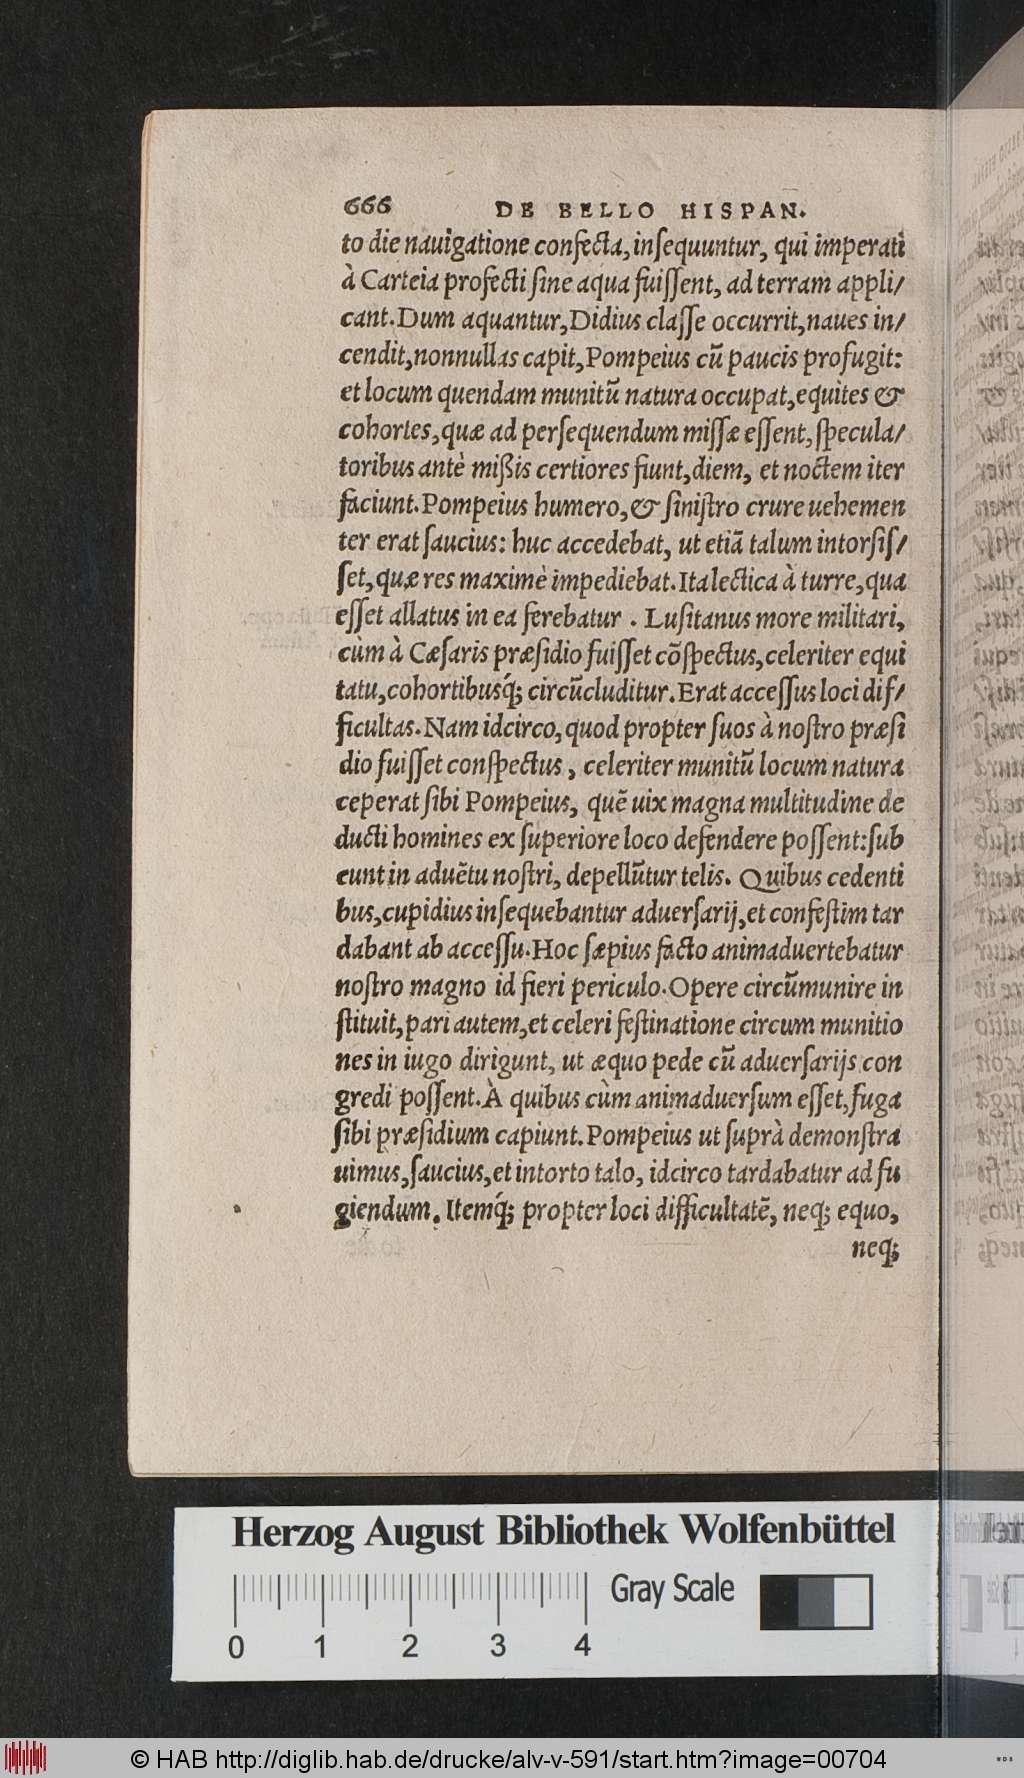 666 DE BELLO HISPAN.
to die nauigatione confecta, insequuntur, qui imperati
à Carteia profecti sine aqua fuissent, ad terram appli/
cant. Dum aquantur, Didius classe occurrit, naues in/
cendit, nonnullas capit, Pompeius cũ paucis profugit:
et locum quendam munitũ natura occupat, equites &
cohortes, quæ ad persequendum missæ essent, specula/
toribus antè mißis certiores fiunt, diem, et noctem iter
faciunt. Pompeius humero, & sinistro crure uehemen
ter erat saucius: huc accedebat, ut etiã talum intorsis/
set, quæ res maximè impediebat. Ita lectica à turre, qua
esset allatus in ea ferebatur. Lusitanus more militari,
cùm à Cæsaris præsidio fuisset cõspectus, celeriter equi
tatu, cohortibusq́; circũcluditur. Erat accessus loci dif/
ficultas. Nam idcirco, quod propter suos à nostro præsi
dio fuisset conspectus, celeriter munitũ locum natura
ceperat sibi Pompeius, quẽ uix magna multitudine de
ducti homines ex superiore loco defendere possent: sub
eunt in aduẽtu nostri, depellũtur telis. Quibus cedenti
bus, cupidius insequebantur aduersarij, et confestim tar
dabant ab accessu. Hoc sæpius facto animaduertebatur
nostro magno id fieri periculo. Opere circũmunire in
stituit, pari autem, et celeri festinatione circum munitio
nes in iugo dirigunt, ut æquo pede cũ aduersarijs con
gredi possent. À quibus cùm animaduersum esset, fuga
sibi præsidium capiunt. Pompeius ut suprà demonstra
uimus, saucius, et intorto talo, idcirco tardabatur ad fu
giendum. Itemq́; propter loci difficultatẽ, neq; equo,
neq;
Herzog August Bibliothek Wolfenbüttel
Gray Scale
0 1 2 3 4
© HAB http://diglib.hab.de/drucke/alv-v-591/start.htm?image=00704